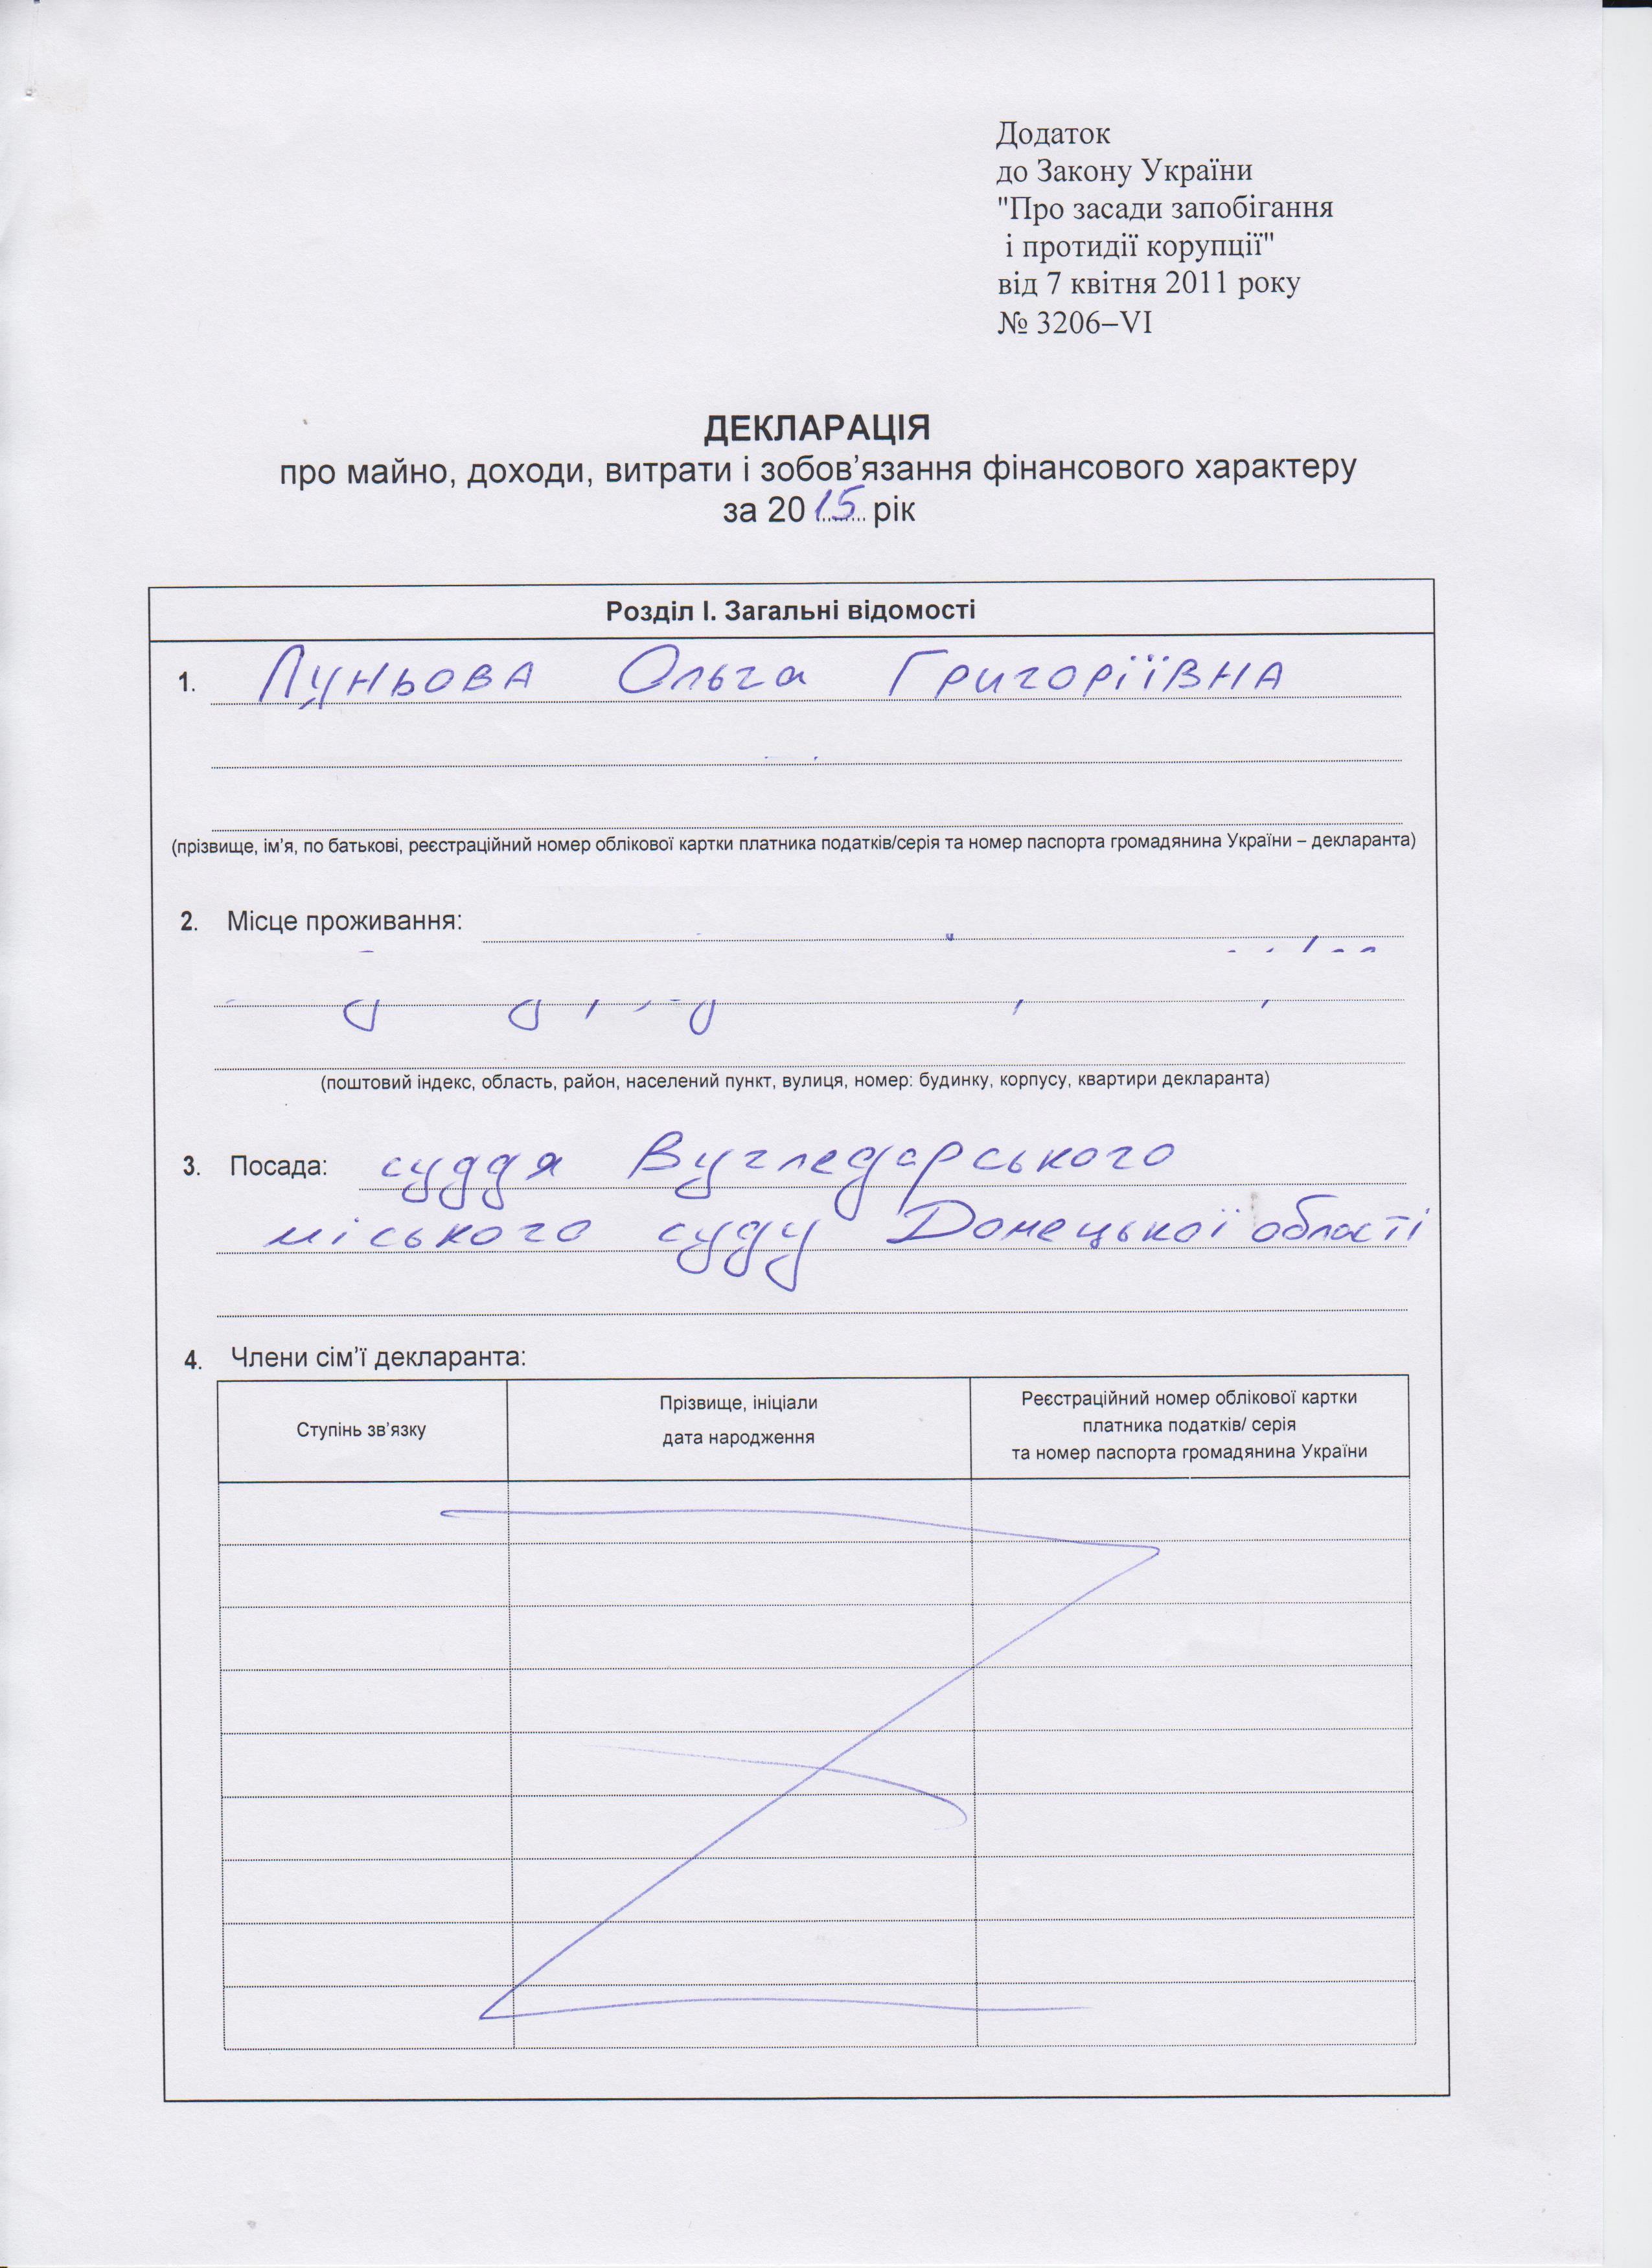 Додаток
до Закону України
"Про засади запобігання
і протидії корупції"
від 7 квітня 2011 року
№ 3206–VI
ДЕКЛАРАЦІЯ
про майно, доходи, витрати і зобов'язання фінансового характеру
за 2015 рік
Розділ І. Загальні відомості
1. Луньова Ольга Григоріївна
(прізвище, ім'я, по батькові, реєстраційний номер облікової картки платника податків/серія та номер паспорта громадянина України – декларанта)
2. Місце проживання:
(поштовий індекс, область, район, населений пункт, вулиця, номер: будинку, корпусу, квартири декларанта)
3. Посада: суддя Вугледарського
міського суду Донецької області
4. Члени сім'ї декларанта:
Ступінь зв'язку
Прізвище, ініціали
дата народження
Реєстраційний номер облікової картки
платника податків/ серія
та номер паспорта громадянина України